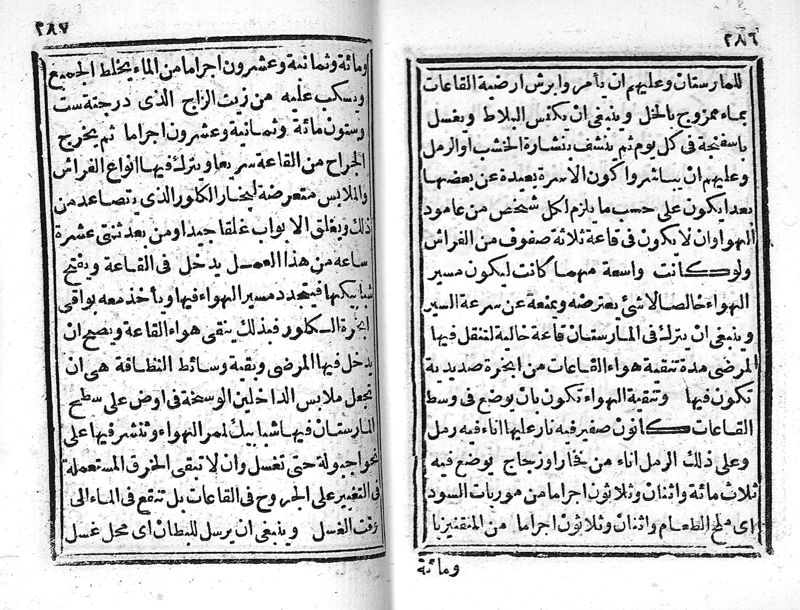 ٢٨٦
للمارستان وعليهم ان يأمروا برش ارضية القاعات
بماء ممزوج بالخل وينبغى ان يكنس البلاط ويغسل
باسفنجة فى كل يوم ثم ينشف بنشارة الخشب او الرمل
وعليهم ان يباشروا كون الاسرة بعيدة عن بعضها
بعدا يكون على حسب ما يلزم لكل شخص من عامود
الهواوان لا يكون فى قاعة ثلاثة صفوف من الفراش
ولو كانت واسعة مهما كانت ليكون مسير
الهواء خالصا لا شئ يعترضه ويمنعه عن سرعة السير
وينبغى ان يترك فى المارستان قاعة خالية لتنقل فيها
المرضى مدة تنقية هواء القاعات من ابخرة صديدية
تكون فيها وتنقية الهواء تكون بان يوضع فى وسط
القاعات كانون صغير فيه نار عليها اناء فيه رمل
وعلى ذلك الرمل اناء من فخار او زجاج يوضع فيه
ثلاث مائة واثنان وثلاثون اجراما من موريات السود
اى ملح الطعام واثنان وثلاثون اجراما من المنقنيزيا
ومائة
٢٨٧
ومائة وثمانية وعشرون اجراما من الماء يخلط الجميع
ويسكب عليه من زيت الزاج الذى درجته ست
وستون مائة وثمانية وعشرون اجراما ثم يخرج
الجراح من القاعة سريعا ويترك فيها انواع الفراش
والملابس متعرضة لبخار الكلور الذى يتصاعد من
ذلك ويغلق الابواب غلقا جيدا ومن بعد ثنتى عشرة
ساعه من هذا العمل يدخل فى القاعة ويفتح
شبابيكها فيتجدد مسير الهواء فيها ويأخذ معه بواقى
ابخرة الكلور فبذلك ينقى هواء القاعة ويصح ان
يدخل فيها المرضى وبقية وسائط النظافة هى ان
تجعل ملابس الداخلين الوسخة فى اوض على سطح
المارستان فيها شبابيك لممر الهواء وتنشر فيها على
نحو احبولة حتى تغسل وان لا تبقى الخرق المستعملة
فى التغيير على الجروح فى القاعات بل تنقع فى الماء الى
وقت الغسل وينبغى ان يرسل للبطان اى محل غسل